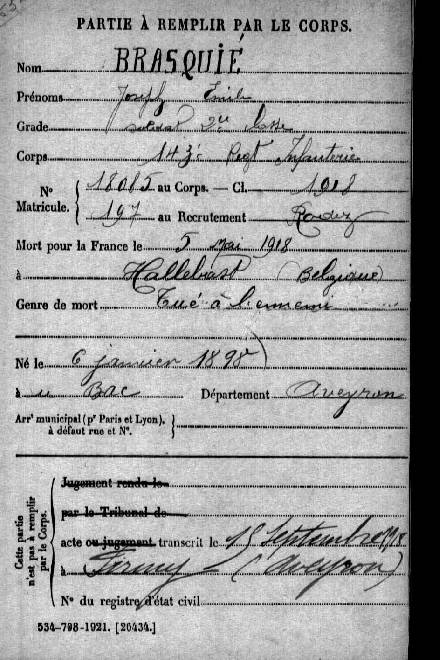 PARTIE À REMPLIR PAR LE CORPS.
Nom BRASQUIÉ
Prénoms Joseph Emile
Grade soldat 2e classe
Corps 143e Regt Infanterie
N° Matricule. { 18085 au Corps. — Cl. 1918
197 au Recrutement Rodez
Mort pour la France le 5 mai 1918
à Hallebast (Belgique)
Genre de mort Tué à l'ennemi
Né le 6 janvier 1898
à Bac Département Aveyron
Arrt municipal (pr Paris et Lyon), à défaut rue et N°. }
Cette partie n'est pas à remplir par le Corps.
Jugement rendu le
par le Tribunal de
acte ou jugement transcrit le 15 Septembre 1918
à Firmy - (Aveyron)
N° du registre d'état civil
534-798-1921. [26434.]